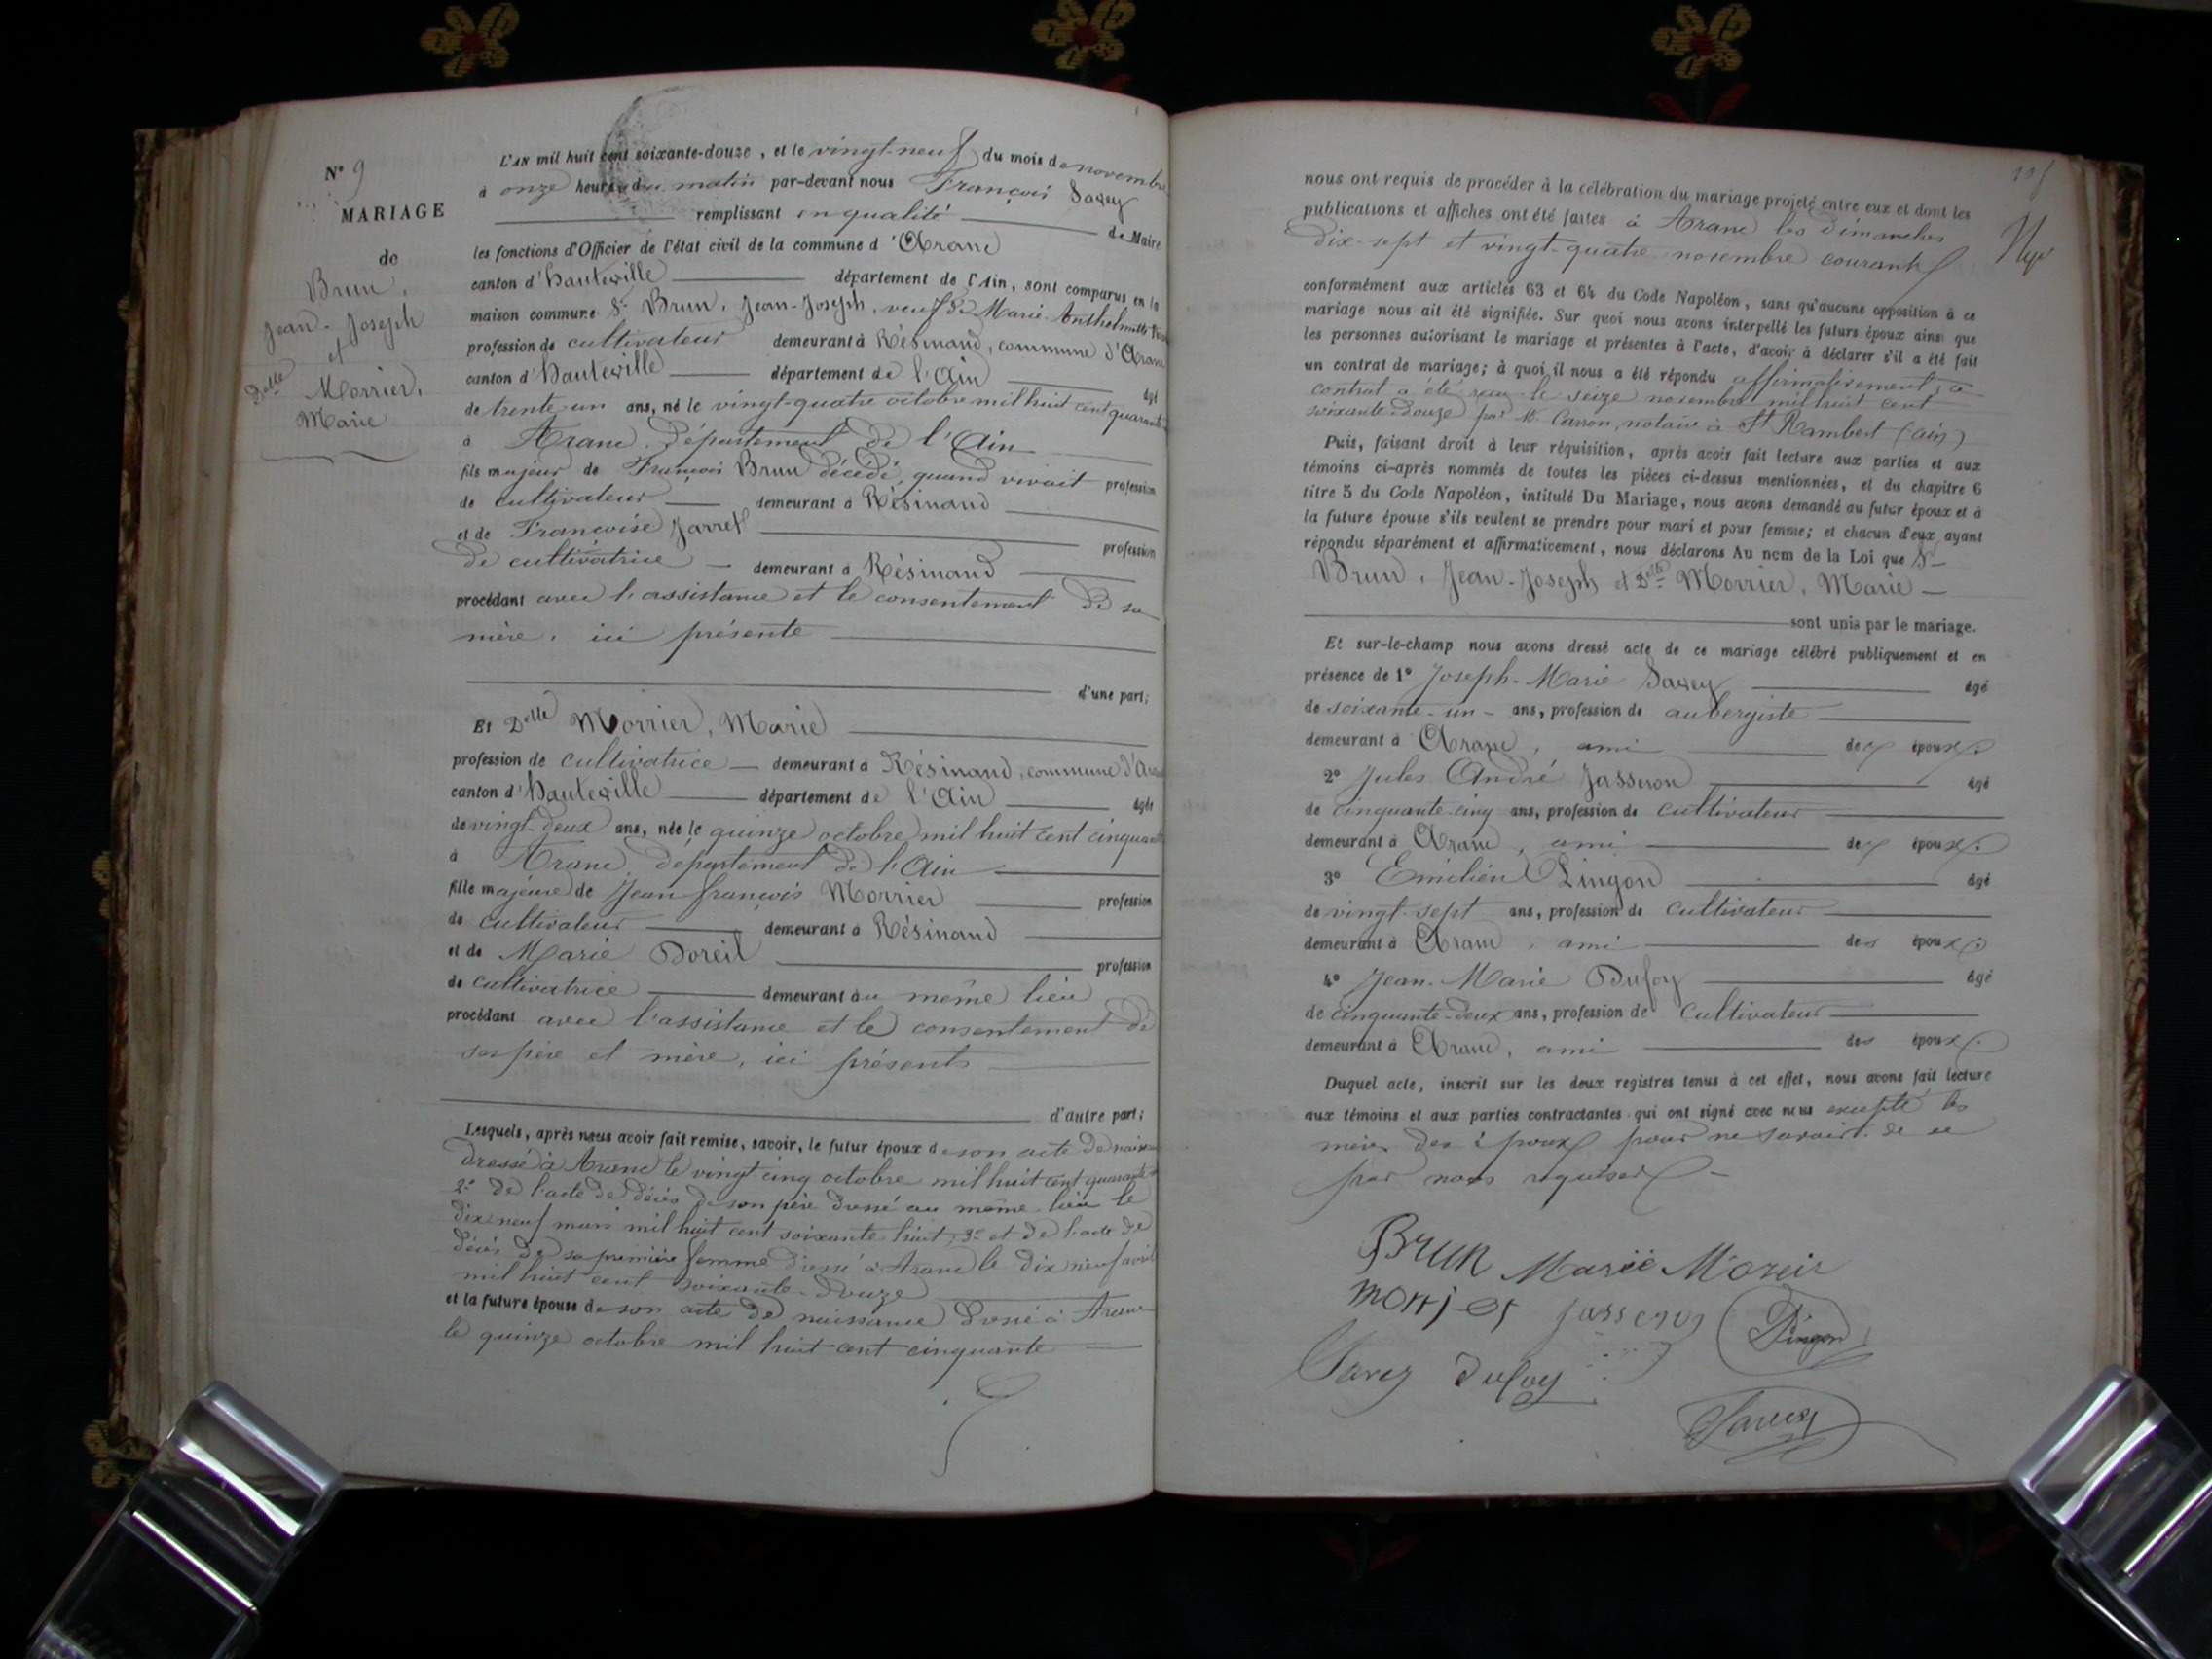 N° 9
MARIAGE
de
Brun,
Jean-Joseph
et
Delle Morrier,
Marie
L'AN mil huit cent soixante-douze, et le vingt-neuf du mois de novembre
à onze heures du matin par-devant nous François Savey
remplissant en qualité de Maire
les fonctions d'Officier de l'état civil de la commune d'Aranc
canton d'hauteville département de l'Ain, sont comparus en la
maison commune Sr Brun, Jean-Joseph, veuf de Marie Anthelmette
profession de cultivateur demeurant à Résinand, commune d'Aranc
canton d'hauteville département de l'Ain âgé
de trente-un ans, né le vingt-quatre octobre mil huit cent quarante
à Aranc, département de l'Ain
fils majeur de François Brun décédé, quand vivait profession
de cultivateur demeurant à Résinand
et de Françoise Jarret profession
de cultivatrice demeurant à Résinand
procédant avec l'assistance et le consentement de sa
mère, ici présente
d'une part;
Et Delle Morrier, Marie
profession de cultivatrice demeurant à Résinand, commune d'
canton d'hauteville département de l'Ain âgée
de vingt-deux ans, née le quinze octobre mil huit cent cinquante
à Aranc, département de l'Ain
fille majeure de Jean françois Morrier profession
de cultivateur demeurant à Résinand
et de Marie Doreil profession
de cultivatrice demeurant au même lieu
procédant avec l'assistance et le consentement de
ses père et mère, ici présents
d'autre part;
Lesquels, après nous avoir fait remise, savoir, le futur époux de son acte de
dressé à Aranc le vingt-cinq octobre mil huit cent quarante
2° de l'acte de décès de son père dressé au même lieu le
dix neuf mars mil huit cent soixante huit, 3° et de l'acte de
décès de sa première femme dressé à Aranc le dix neuf avril
mil huit cent soixante-douze
et la future épouse de son acte de naissance dressé à Aranc
le quinze octobre mil huit cent cinquante
nous ont requis de procéder à la célébration du mariage projeté entre eux et dont les
publications et affiches ont été faites à Aranc les dimanches
dix-sept et vingt-quatre novembre courant
conformément aux articles 63 et 64 du Code Napoléon, sans qu'aucune opposition à ce
mariage nous ait été signifiée. Sur quoi nous avons interpellé les futurs époux ainsi que
les personnes autorisant le mariage et présentes à l'acte, d'avoir à déclarer s'il a été fait
un contrat de mariage; à quoi il nous a été répondu affirmativement, ce
contrat a été reçu le seize novembre mil huit cent
soixante-douze par Me Carron, notaire à St Rambert (ain)
Puis, faisant droit à leur réquisition, après avoir fait lecture aux parties et aux
témoins ci-après nommés de toutes les pièces ci-dessus mentionnées, et du chapitre 6
titre 5 du Code Napoléon, intitulé Du Mariage, nous avons demandé au futur époux et à
la future épouse s'ils veulent se prendre pour mari et pour femme; et chacun d'eux ayant
répondu séparément et affirmativement, nous déclarons Au nom de la Loi que Sr
Brun, Jean-Joseph et Delle Morrier, Marie
sont unis par le mariage.
Et sur-le-champ nous avons dressé acte de ce mariage célébré publiquement et en
présence de 1° Joseph-Marie Savey âgé
de soixante-un ans, profession de aubergiste
demeurant à Aranc, ami des époux.
2° Jules André Jasseron âgé
de cinquante cinq ans, profession de cultivateur
demeurant à Aranc, ami des époux.
3° Emilien Pingon âgé
de vingt-sept ans, profession de cultivateur
demeurant à Aranc, ami des époux.
4° Jean-Marie Dufoy âgé
de cinquante-deux ans, profession de cultivateur
demeurant à Aranc, ami des époux.
Duquel acte, inscrit sur les deux registres tenus à cet effet, nous avons fait lecture
aux témoins et aux parties contractantes qui ont signé avec nous excepté les
mères des époux pour ne savoir, de ce
par nous requises
Brun Marie Morier
morrier Jasseron Pingon
Savey Dufoy
Savey